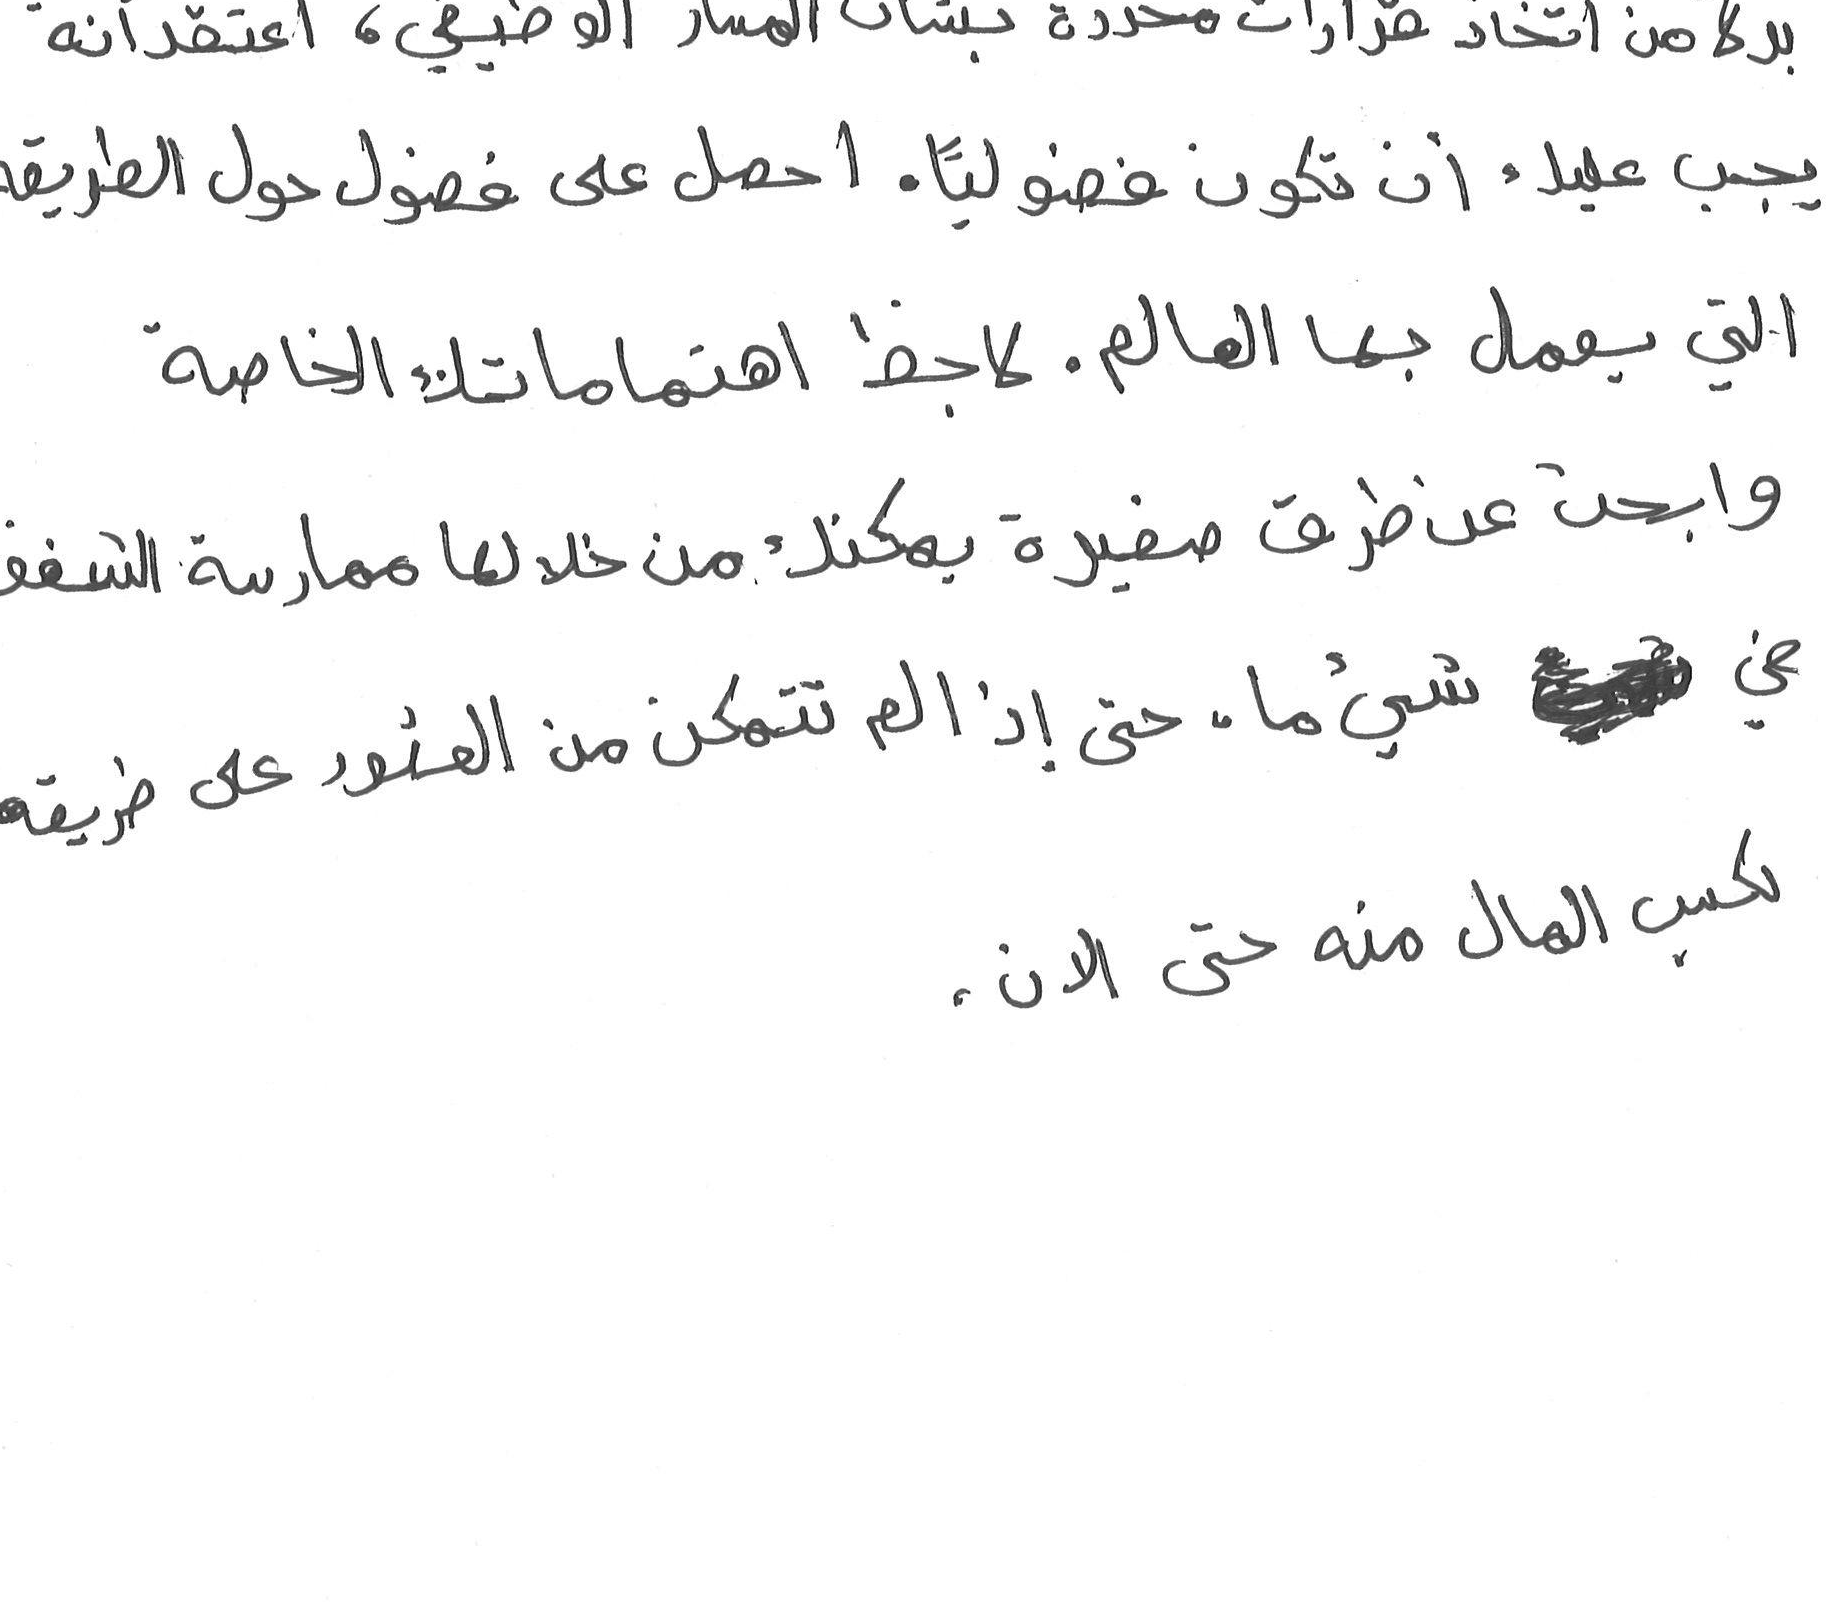 بدلا من اتخاذ قرارات محددة بشأن المسار الوظيفي، اعتقد أنه
يجب عليك أن تكون فضوليًا. احصل على فضول حول الطريقة
التي يعمل بها العالم. لاحظ اهتماماتك الخاصة
وابحث عن طرق صغيرة يمكنك من خلالها ممارسة الشغف
في شيء ما، حتى إذا لم تتمكن من العثور على طريقة
لكسب المال منه حتى الان.